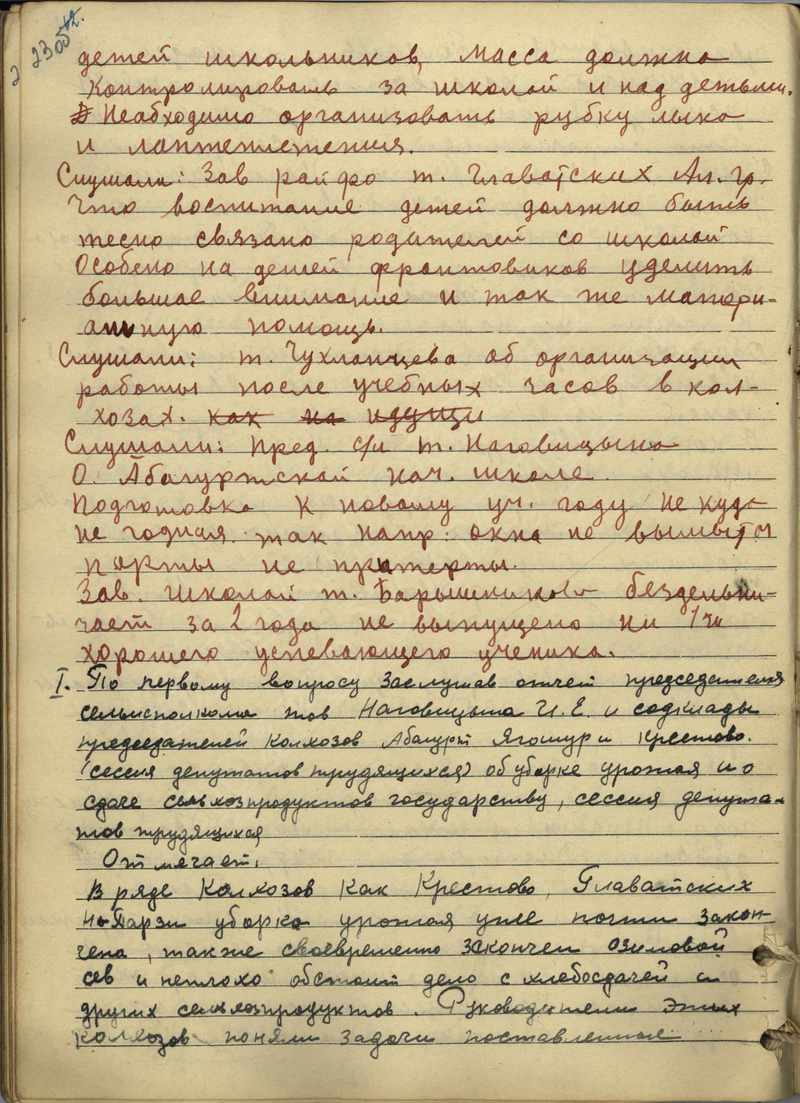 2 23об 42.
детей школьников, масса должна
контролировать за школой и над детьми.
Необходимо организовать рубку лыка
и лаптеплетения.
Слушали: Зав райфо т. Главатских Ал. Гр.
Что воспитание детей должно быть
тесно связано родителей со школой
Особено на детей фронтовиков уделить
большое внимание и так же матери-
альную помощь.
Слушали: т. Чухланцева об организации
работы после учебных часов в кол-
хозах. как на идущи
Слушали: Пред. с/и т. Наговицына
О. Абагуртской нач. школе.
Подготовка к новому уч. году не куда
не годная. так напр: окна не вымыты
парты не притерты.
Зав. школой т. Барышникова бездельни-
чает за 2 года не выпущено ни 1го
хорошего успевающего ученика.
I. По первому вопросу заслушав отчет председателя
сельисполкома тов Наговицына И. Е. и содклады
председателей колхозов Абагурт Ягошур и Крестово.
(сессия депутатов трудящихся) об уборке урожая и о
сдаче сельхозпродуктов государству, сессия депута-
тов трудящихся
Отмечает:
В ряде колхозов как Крестово, Главатских
Парзи уборка урожая уже почти закон-
чена, также своевременно закончен озимовой
сев и неплохо обстоит дело с хлебосдачей и
других сельхозпродуктов. Руководители этих
колхозов поняли задачи поставленные